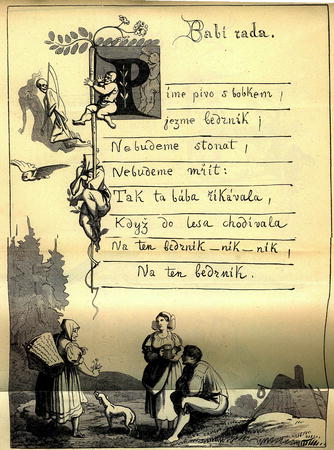 Babí rada.
Pijme pivo s bobkem,
jezme bedrník,
Nebudeme stonat,
Nebudeme mřít:
Tak ta bába říkávala,
Když do lesa chodívala
Na ten bedrník–ník–ník,
Na ten bedrník.